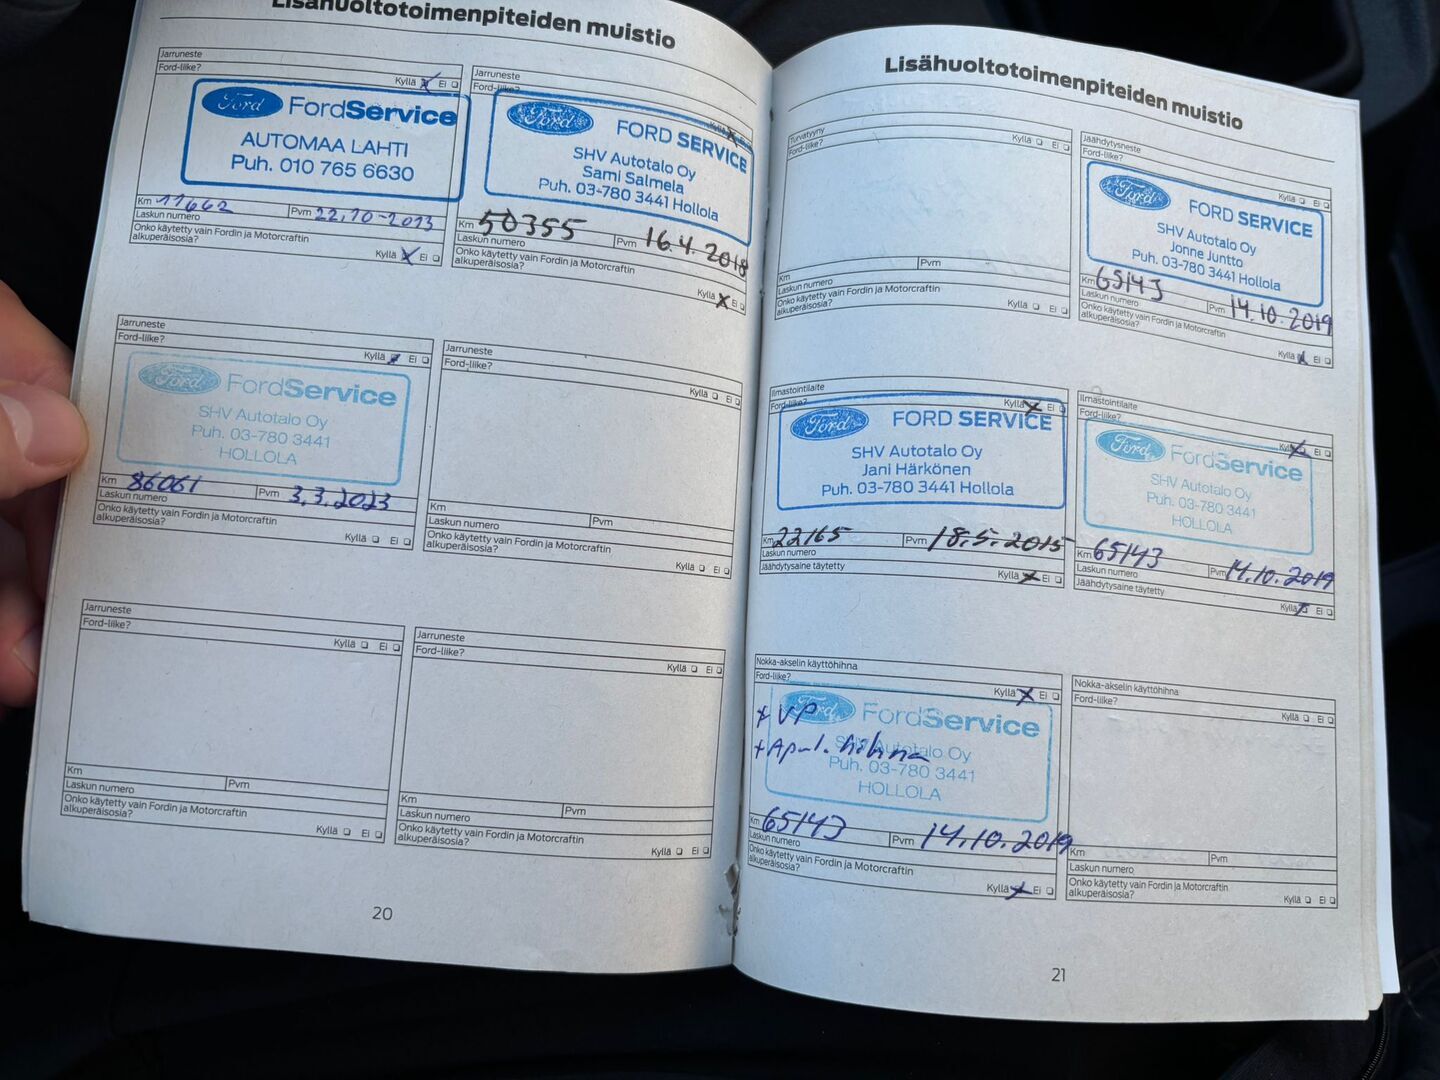 Lisähuoltotoimenpiteiden muistio
Jarruneste
Ford-liike?
Kyllä Ei
Ford FordService
AUTOMAA LAHTI
Puh. 010 765 6630
Km 11662 Pvm 22.10-2013
Laskun numero
Onko käytetty vain Fordin ja Motorcraftin
alkuperäisosia?
Kyllä Ei
Jarruneste
Ford-liike?
Kyllä Ei
Ford FORD SERVICE
SHV Autotalo Oy
Sami Salmela
Puh. 03-780 3441 Hollola
Km 50355 Pvm 16.4.2018
Laskun numero
Onko käytetty vain Fordin ja Motorcraftin
alkuperäisosia?
Kyllä Ei
Jarruneste
Ford-liike?
Kyllä Ei
Ford FordService
SHV Autotalo Oy
Puh. 03-780 3441
HOLLOLA
Km 86061 Pvm 3.3.2023
Laskun numero
Onko käytetty vain Fordin ja Motorcraftin
alkuperäisosia?
Kyllä Ei
Jarruneste
Ford-liike?
Kyllä Ei
Km
Laskun numero Pvm
Onko käytetty vain Fordin ja Motorcraftin
alkuperäisosia?
Kyllä Ei
Jarruneste
Ford-liike?
Kyllä Ei
Km
Laskun numero Pvm
Onko käytetty vain Fordin ja Motorcraftin
alkuperäisosia?
Kyllä Ei
Jarruneste
Ford-liike?
Kyllä Ei
Km
Laskun numero Pvm
Onko käytetty vain Fordin ja Motorcraftin
alkuperäisosia?
Kyllä Ei
20
Lisähuoltotoimenpiteiden muistio
Turvatyyny
Ford-liike?
Kyllä Ei
Km Pvm
Laskun numero
Onko käytetty vain Fordin ja Motorcraftin
alkuperäisosia?
Kyllä Ei
Jäähdytysneste
Ford-liike?
Kyllä Ei
Ford FORD SERVICE
SHV Autotalo Oy
Jonne Juntto
Puh. 03-780 3441 Hollola
Km 65143 Pvm 14.10.2019
Laskun numero
Onko käytetty vain Fordin ja Motorcraftin
alkuperäisosia?
Kyllä Ei
Ilmastointilaite
Ford-liike?
Kyllä Ei
Ford FORD SERVICE
SHV Autotalo Oy
Jani Härkönen
Puh. 03-780 3441 Hollola
Km 22165 Pvm 18.5.2015
Laskun numero
Jäähdytysaine täytetty
Kyllä Ei
Ilmastointilaite
Ford-liike?
Kyllä Ei
Ford FordService
SHV Autotalo Oy
Puh. 03-780 3441
HOLLOLA
Km 65143 Pvm 14.10.2019
Laskun numero
Jäähdytysaine täytetty
Kyllä Ei
Nokka-akselin käyttöhihna
Ford-liike?
Kyllä Ei
Ford FordService
+ VP
SHV Autotalo Oy
+ Apul. hihna
Puh. 03-780 3441
HOLLOLA
Km 65143 Pvm 14.10.2019
Laskun numero
Onko käytetty vain Fordin ja Motorcraftin
alkuperäisosia?
Kyllä Ei
Nokka-akselin käyttöhihna
Ford-liike?
Kyllä Ei
Km Pvm
Laskun numero
Onko käytetty vain Fordin ja Motorcraftin
alkuperäisosia?
Kyllä Ei
21